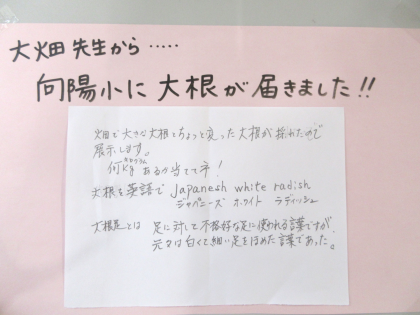 大畑先生から・・・・・
向陽小に大根が届きました!!
畑で大きな大根とちょっと変った大根が採れたので
展示します。
何Kg キログラム あるか当てて下さい!
大根を英語で Japanesh white radish
ジャパニーズ ホワイト ラディッシュ
大根足とは 足に対して不格好な足に使われる言葉ですが
元々は白くて細い足をほめた言葉であった。